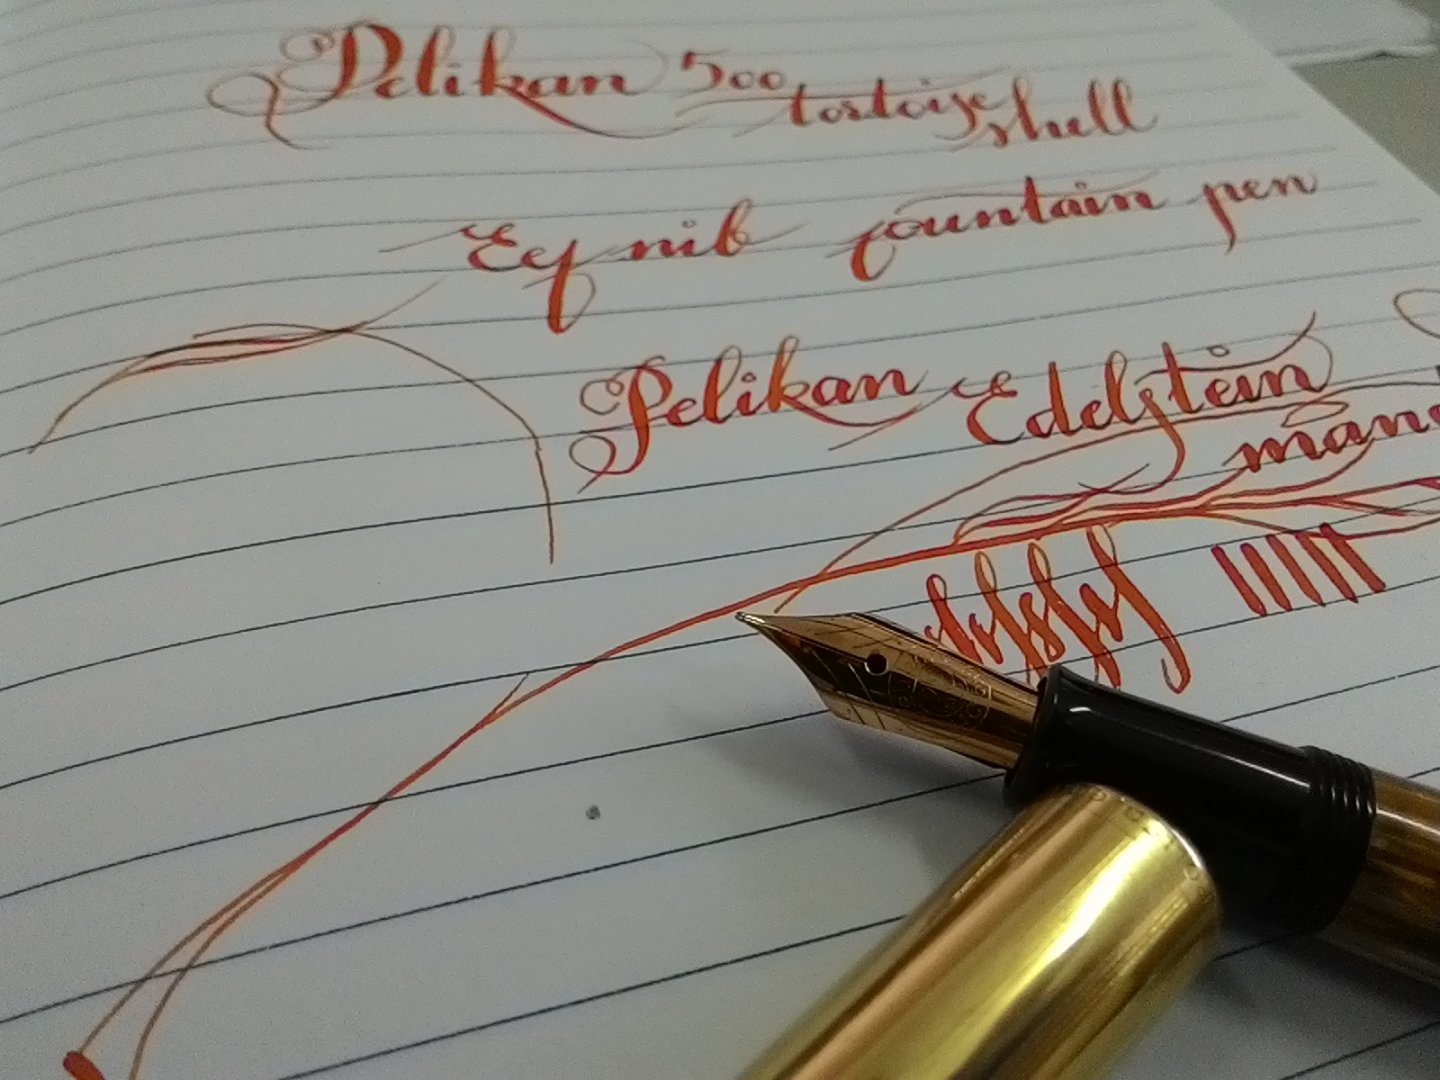 Pelikan 500 tortoise shell
Eef nib fountain pen
Pelikan Edelstein